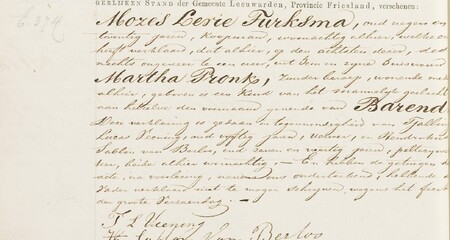 BERLIJKEN STAND der Gemeente Leeuwarden, Provincie Friesland, verschenen:
Mozes Levie Turksma, oud negen en
twintig jaren, Koopman, woonachtig alhier, welke ons
heeft verklaard, dat alhier, op den achtsten dezer, des
nachts ongeveer te een uur, uit hem en zijne huisvrouw
Martha Pronk, zonder beroep, wonende mede
alhier, geboren is een Kind van het mannelijk geslacht
aan hetwelk den voornaam gevende van Barend
Deze verklaring is gedaan in tegenwoordigheid Tjalling
Lucas Viening, oud vijftig jaren, en Hendrikus
Sablon van Berloo, oud zeven en veertig jaren,
beide alhier woonachtig. — En hebben de getuigen
acte, na voorlezing, nevens ons onderteekend, hebbende
Vader verklaard niet te mogen schrijven, wegens het feest
der groote Verzoendag. —
T L Viening
H Sablon Van Berloo